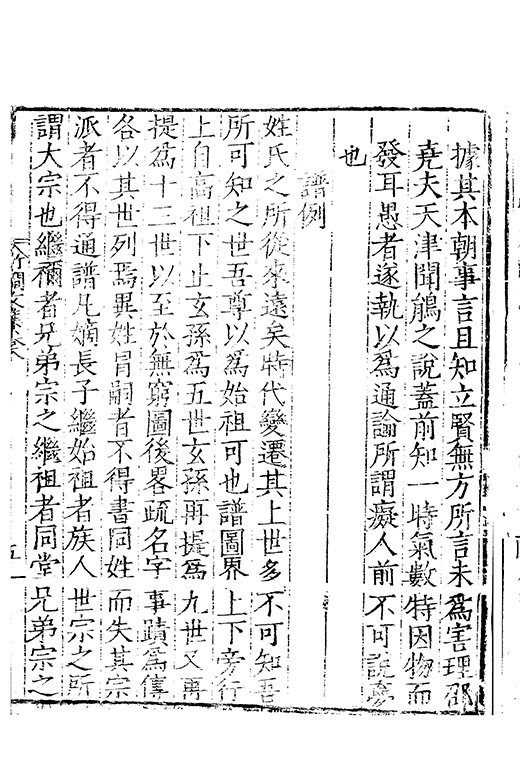 據其本朝事言且知立賢無方所言未爲害理邵
堯夫天津聞鵑之說蓋前知一時氣數特因物而
發耳愚者遂執以爲通論所謂癡人前不可說夢
也
譜例
姓氏之所從來遠矣時代變遷其上世多不可知吾
所可知之世吾尊以爲始祖可也譜圖界上下旁行
上自高祖下止玄孫爲五世玄孫再提爲九世又再
提爲十三世以至於無窮圖後畧疏名字事蹟爲傳
各以其世列焉異姓冐嗣者不得書同姓而失其宗
派者不得通譜凡嫡長子繼始祖者族人世宗之所
謂大宗也繼禰者兄弟宗之繼祖者同堂兄弟宗之
竹澗文集卷八
五